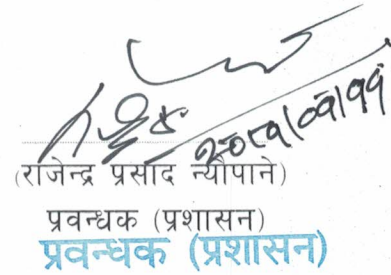 २०८१/०१/११
(राजेन्द्र प्रसाद न्यौपाने)
प्रवन्धक (प्रशासन)
प्रवन्धक (प्रशासन)